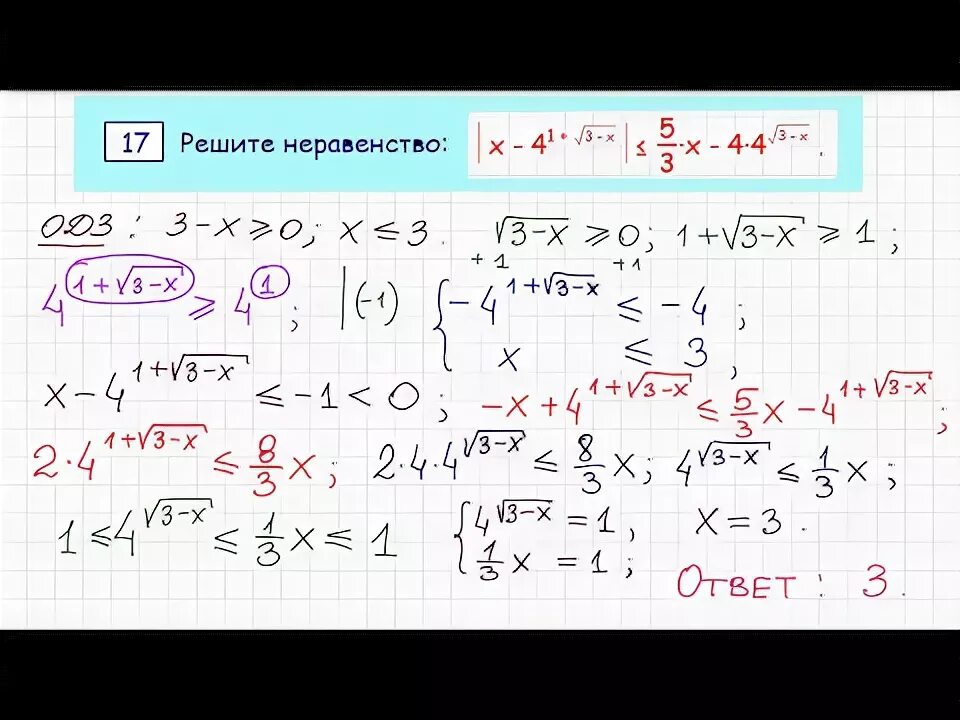 17 Решите неравенство: |x - 4^(1+√(3-x))| ≤ 5/3·x - 4·4^√(3-x).
ОДЗ: 3-x ≥ 0; x ≤ 3. √(3-x) ≥ 0; 1+√(3-x) ≥ 1;
+1 +1
4^(1+√(3-x)) ≥ 4^1; |(-1) { -4^(1+√(3-x)) ≤ -4;
x ≤ 3,
x - 4^(1+√(3-x)) ≤ -1 < 0; -x + 4^(1+√(3-x)) ≤ 5/3 x - 4^(1+√(3-x));
2·4^(1+√(3-x)) ≤ 8/3 x; 2·4·4^√(3-x) ≤ 8/3 x; 4^√(3-x) ≤ 1/3 x;
1 ≤ 4^√(3-x) ≤ 1/3 x ≤ 1 { 4^√(3-x) = 1, x = 3.
1/3 x = 1;
Ответ: 3.